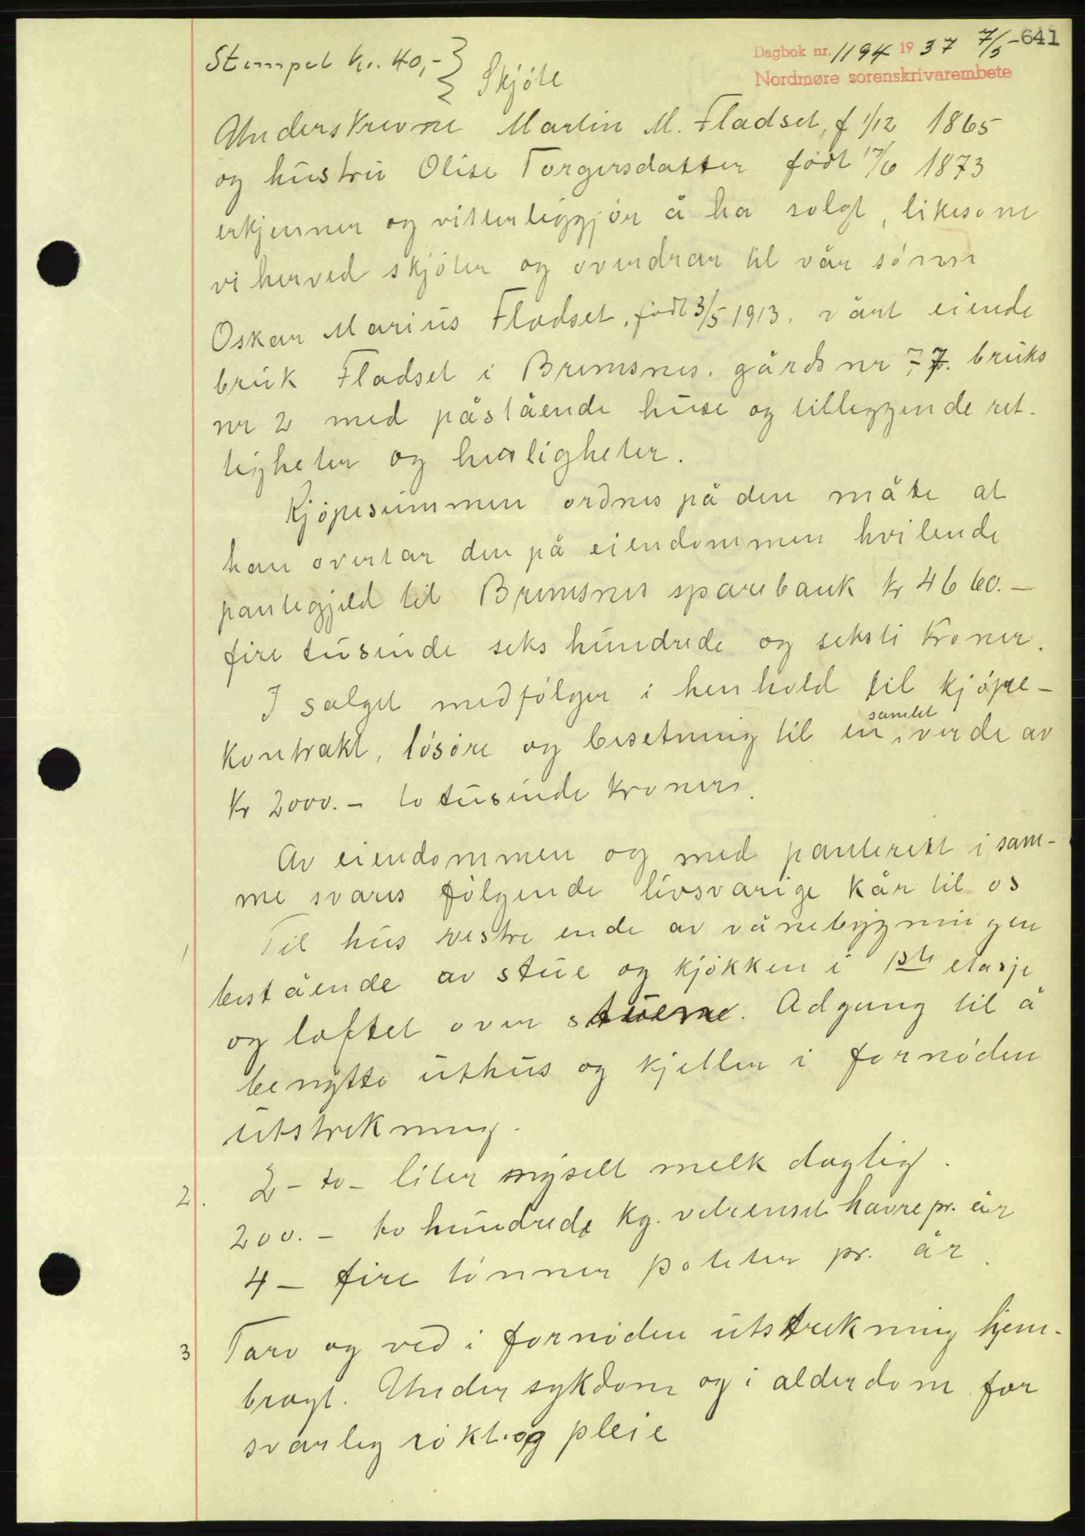 641
Dagbok nr. 1194 1937 7/5
Nordmøre sorenskrivarembete
Stempel kr. 40,-
Skjøte
Underskrevne Martin M. Fladset, f 1/12 1865
og hustru Olise Torgersdatter født 17/6 1873
erkjenner og vitterliggjør å ha solgt, likesom
vi herved skjøter og overdrar til vår sønn
Oskar Marius Fladset, født 3/5 1913. vårt eiende
bruk Fladset i Bremsnes. gårds nr 77. bruks
nr 2 med påstående huse og tilleggende ret-
tigheter og herligheter.
Kjøpesummen ordnes på den måte at
han overtar den på eiendommen hvilende
pantegjeld til Bremsnes sparebank kr 4660.-
fire tusinde seks hundrede og seksti kroner.
I salget medfølger i henhold til kjøpe-
kontrakt, løsøre og besetning til en samlet verdi av
Kr 2000.- to tusinde kroner.
Av eiendommen og med panterett i sam-
me svares følgende livsvarige kår til os
1 Til hus vestre ende av vånebygningen
bestående av stue og kjøkken i 1ste etasje
og loftet over stuene. Adgang til å
benytte uthus og kjeller i fornøden
utstrekning.
2. 2 - to - liter nysilt melk daglig.
200.- to hundrede kg. velrenset havre pr. år
4 - fire tønner poteter pr. år.
3 Torv og ved i fornøden utstrekning hjem-
bragt. Under sykdom og i alderdom for
svarlig røkt og pleie